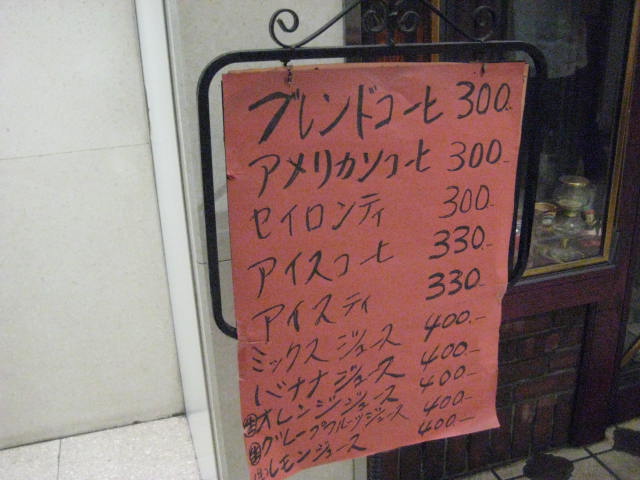 ブレンドコーヒ 300.-
アメリカンコーヒ 300.-
セイロンティ 300.-
アイスコーヒ 330.-
アイスティ 330.-
ミックスジュース 400.-
バナナジュース 400.-
生オレンジジュース 400.-
生グレープフルーツジュース 400.-
レモンジュース 400.-